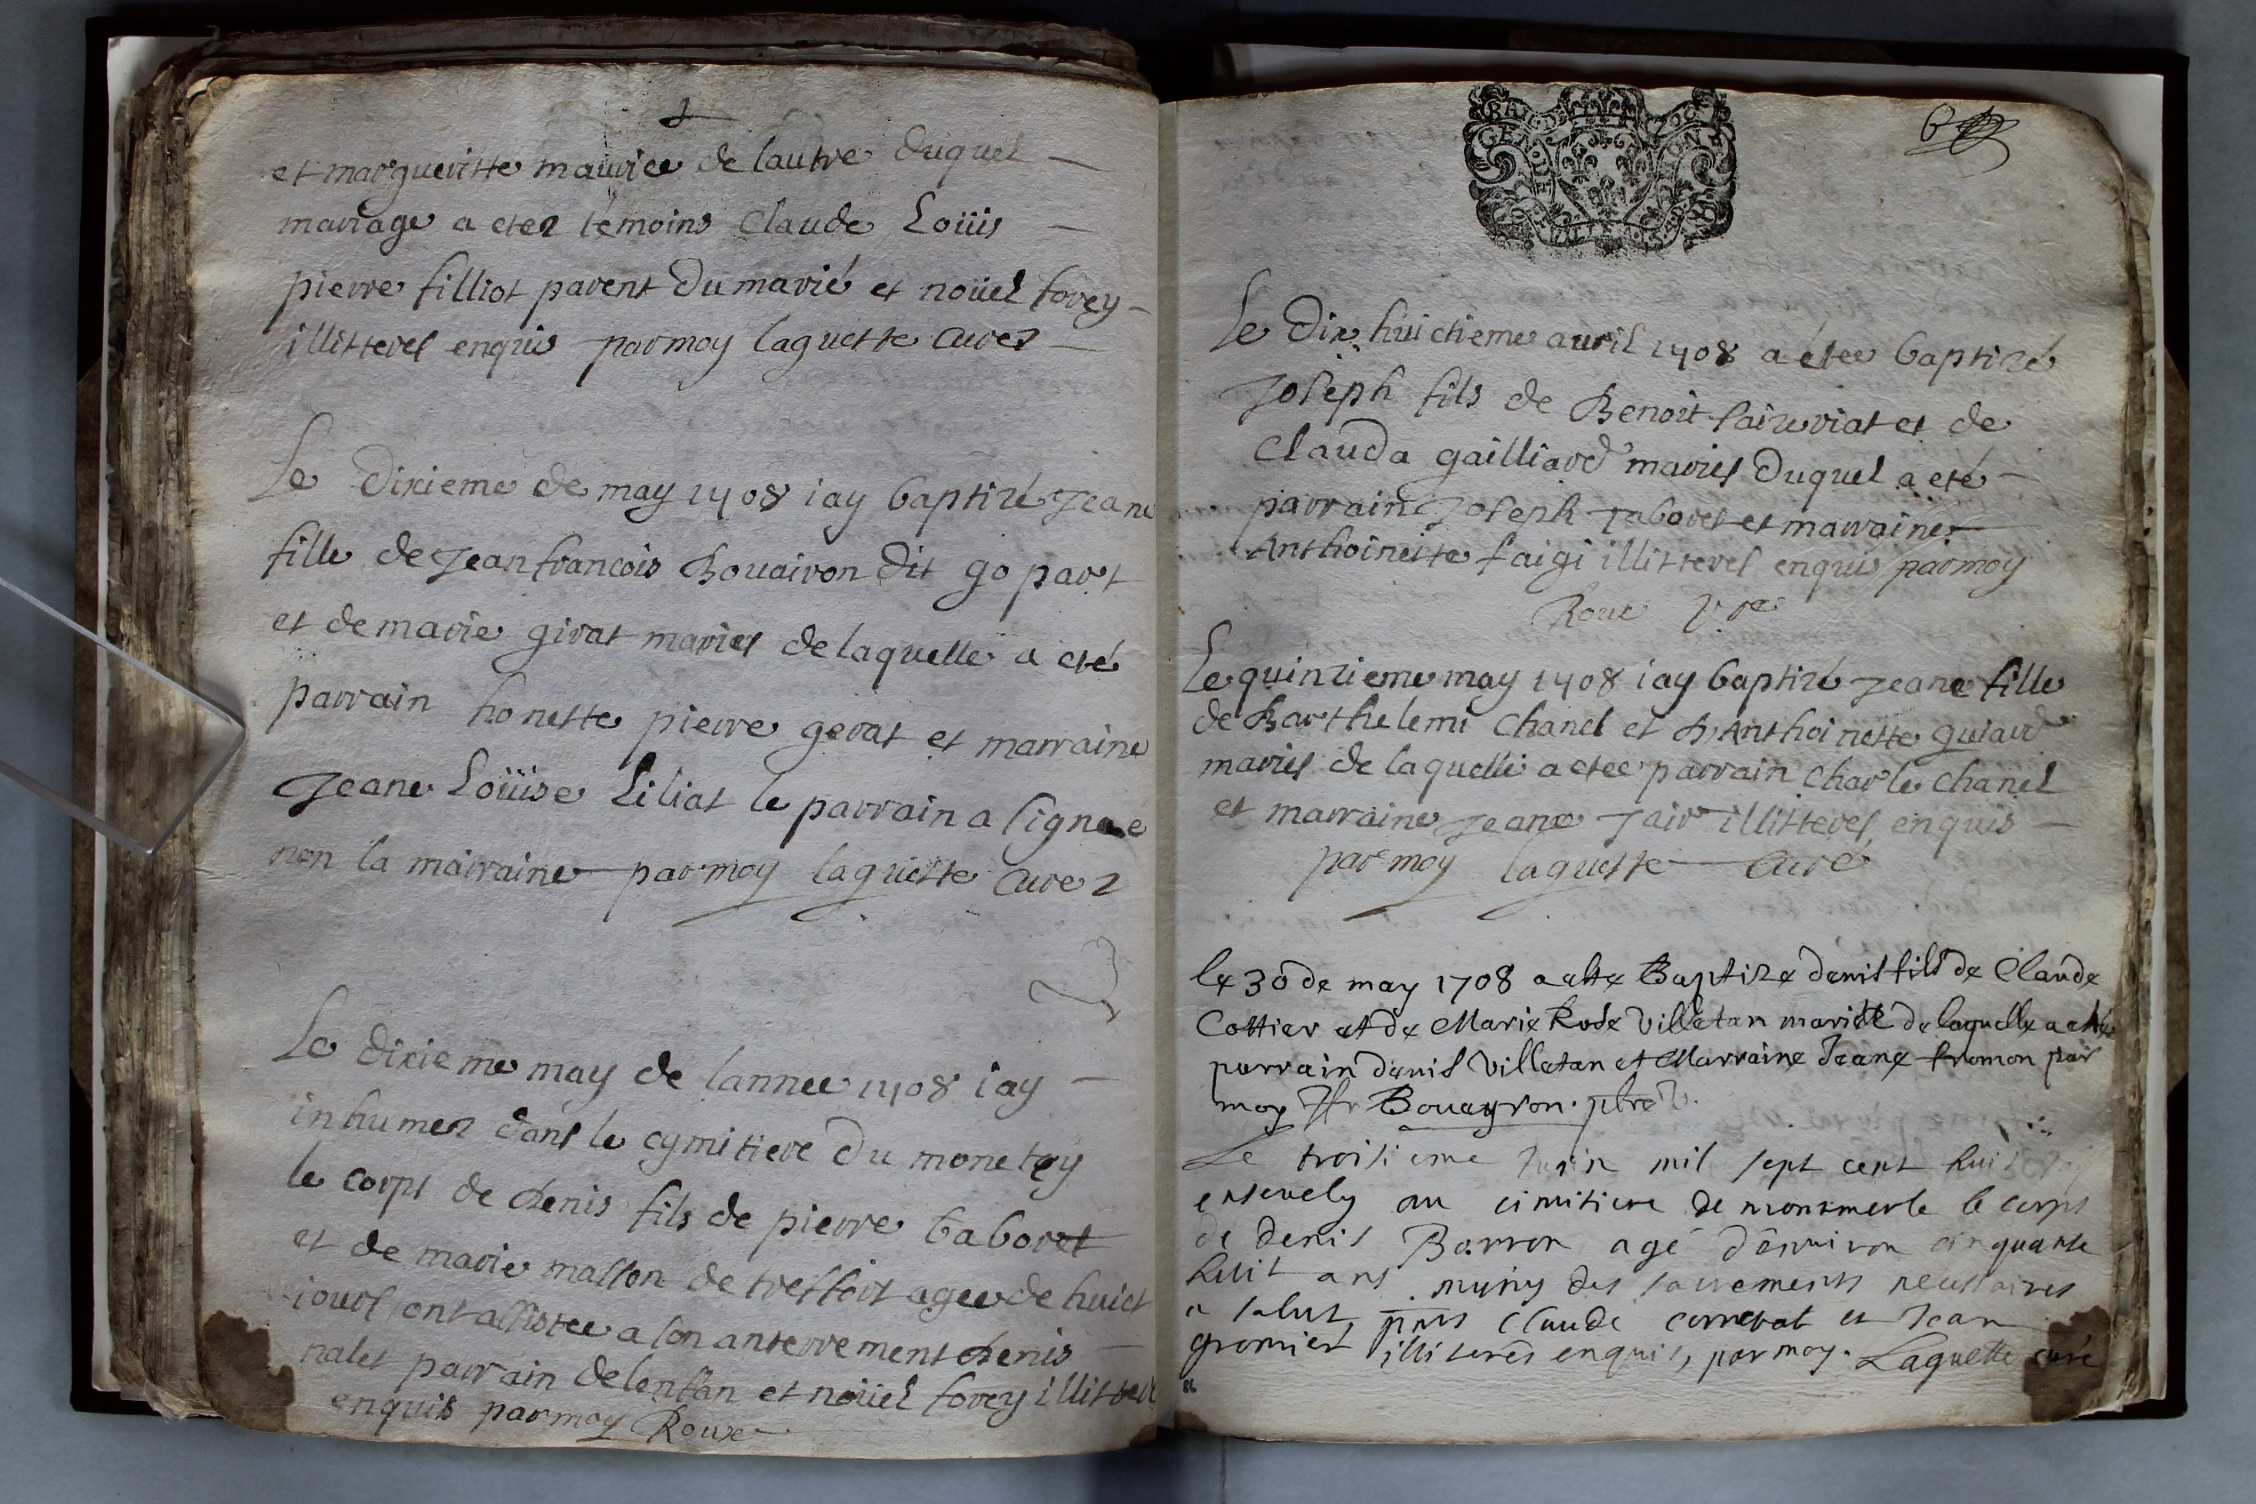 et margueritte maurice de lautre duquel
mariage a etez temoins Claude Loüis
pierre filliot parent du marié et noüel forey
illitterés enquis par moy laguette curez
Le dixieme de may 1708 iay baptizé Jeane
fille de Jean francois Bouairon dit gopart
et de marie girat mariés de laquelle a eté
parrain honette pierre gerat et marraine
Jeane Loüise Liliat le parrain a signe e
non la marraine par moy laguette curez
Le dixieme may de lannee 1708 iay
inhumez dans le cymitiere du monetay
le corps de denis fils de pierre baboret
et de marie masson de tresfort agee de huict
iours ont assistee a son anterrement denis
nalet parrain de lenfan et noüel forey illitteré
enquis par moy Roux
Le dix huictieme auril 1708 a étee baptizé
Joseph fils de Benoit faizeriat et de
Clauda gailliard mariés duquel a eté
parrain Joseph Taboret et marraine
Anthoinette faigi illitterés enquis par moy
Roux ptre
Le quinzieme may 1708 iay baptizé Jeane fille
de Barthelemi Chanel et Anthoinette guiard
mariés de laquelle a etee parrain Charle Chanel
et marraine Jeane Jair illitterés enquis
par moy laguette curé
le 30 de may 1708 a este Baptize denis fils de Claude
Cottier et de Marie Rose Villetan mariés de laquelle a esté
parrain denis Villetan et Marraine Jeane fromon par
moy Bouayron ptre
Le troisieme Juin mil sept cent huit Jay
enseuely au cimitiere de monsmerle le corps
de denis Barron agé d'enuiron cinquante
huit ans muny des sacrements necessaires
a salut, pnts Claude correrat et Jean
gromier illiterés enquis, par moy. Laguette curé
86